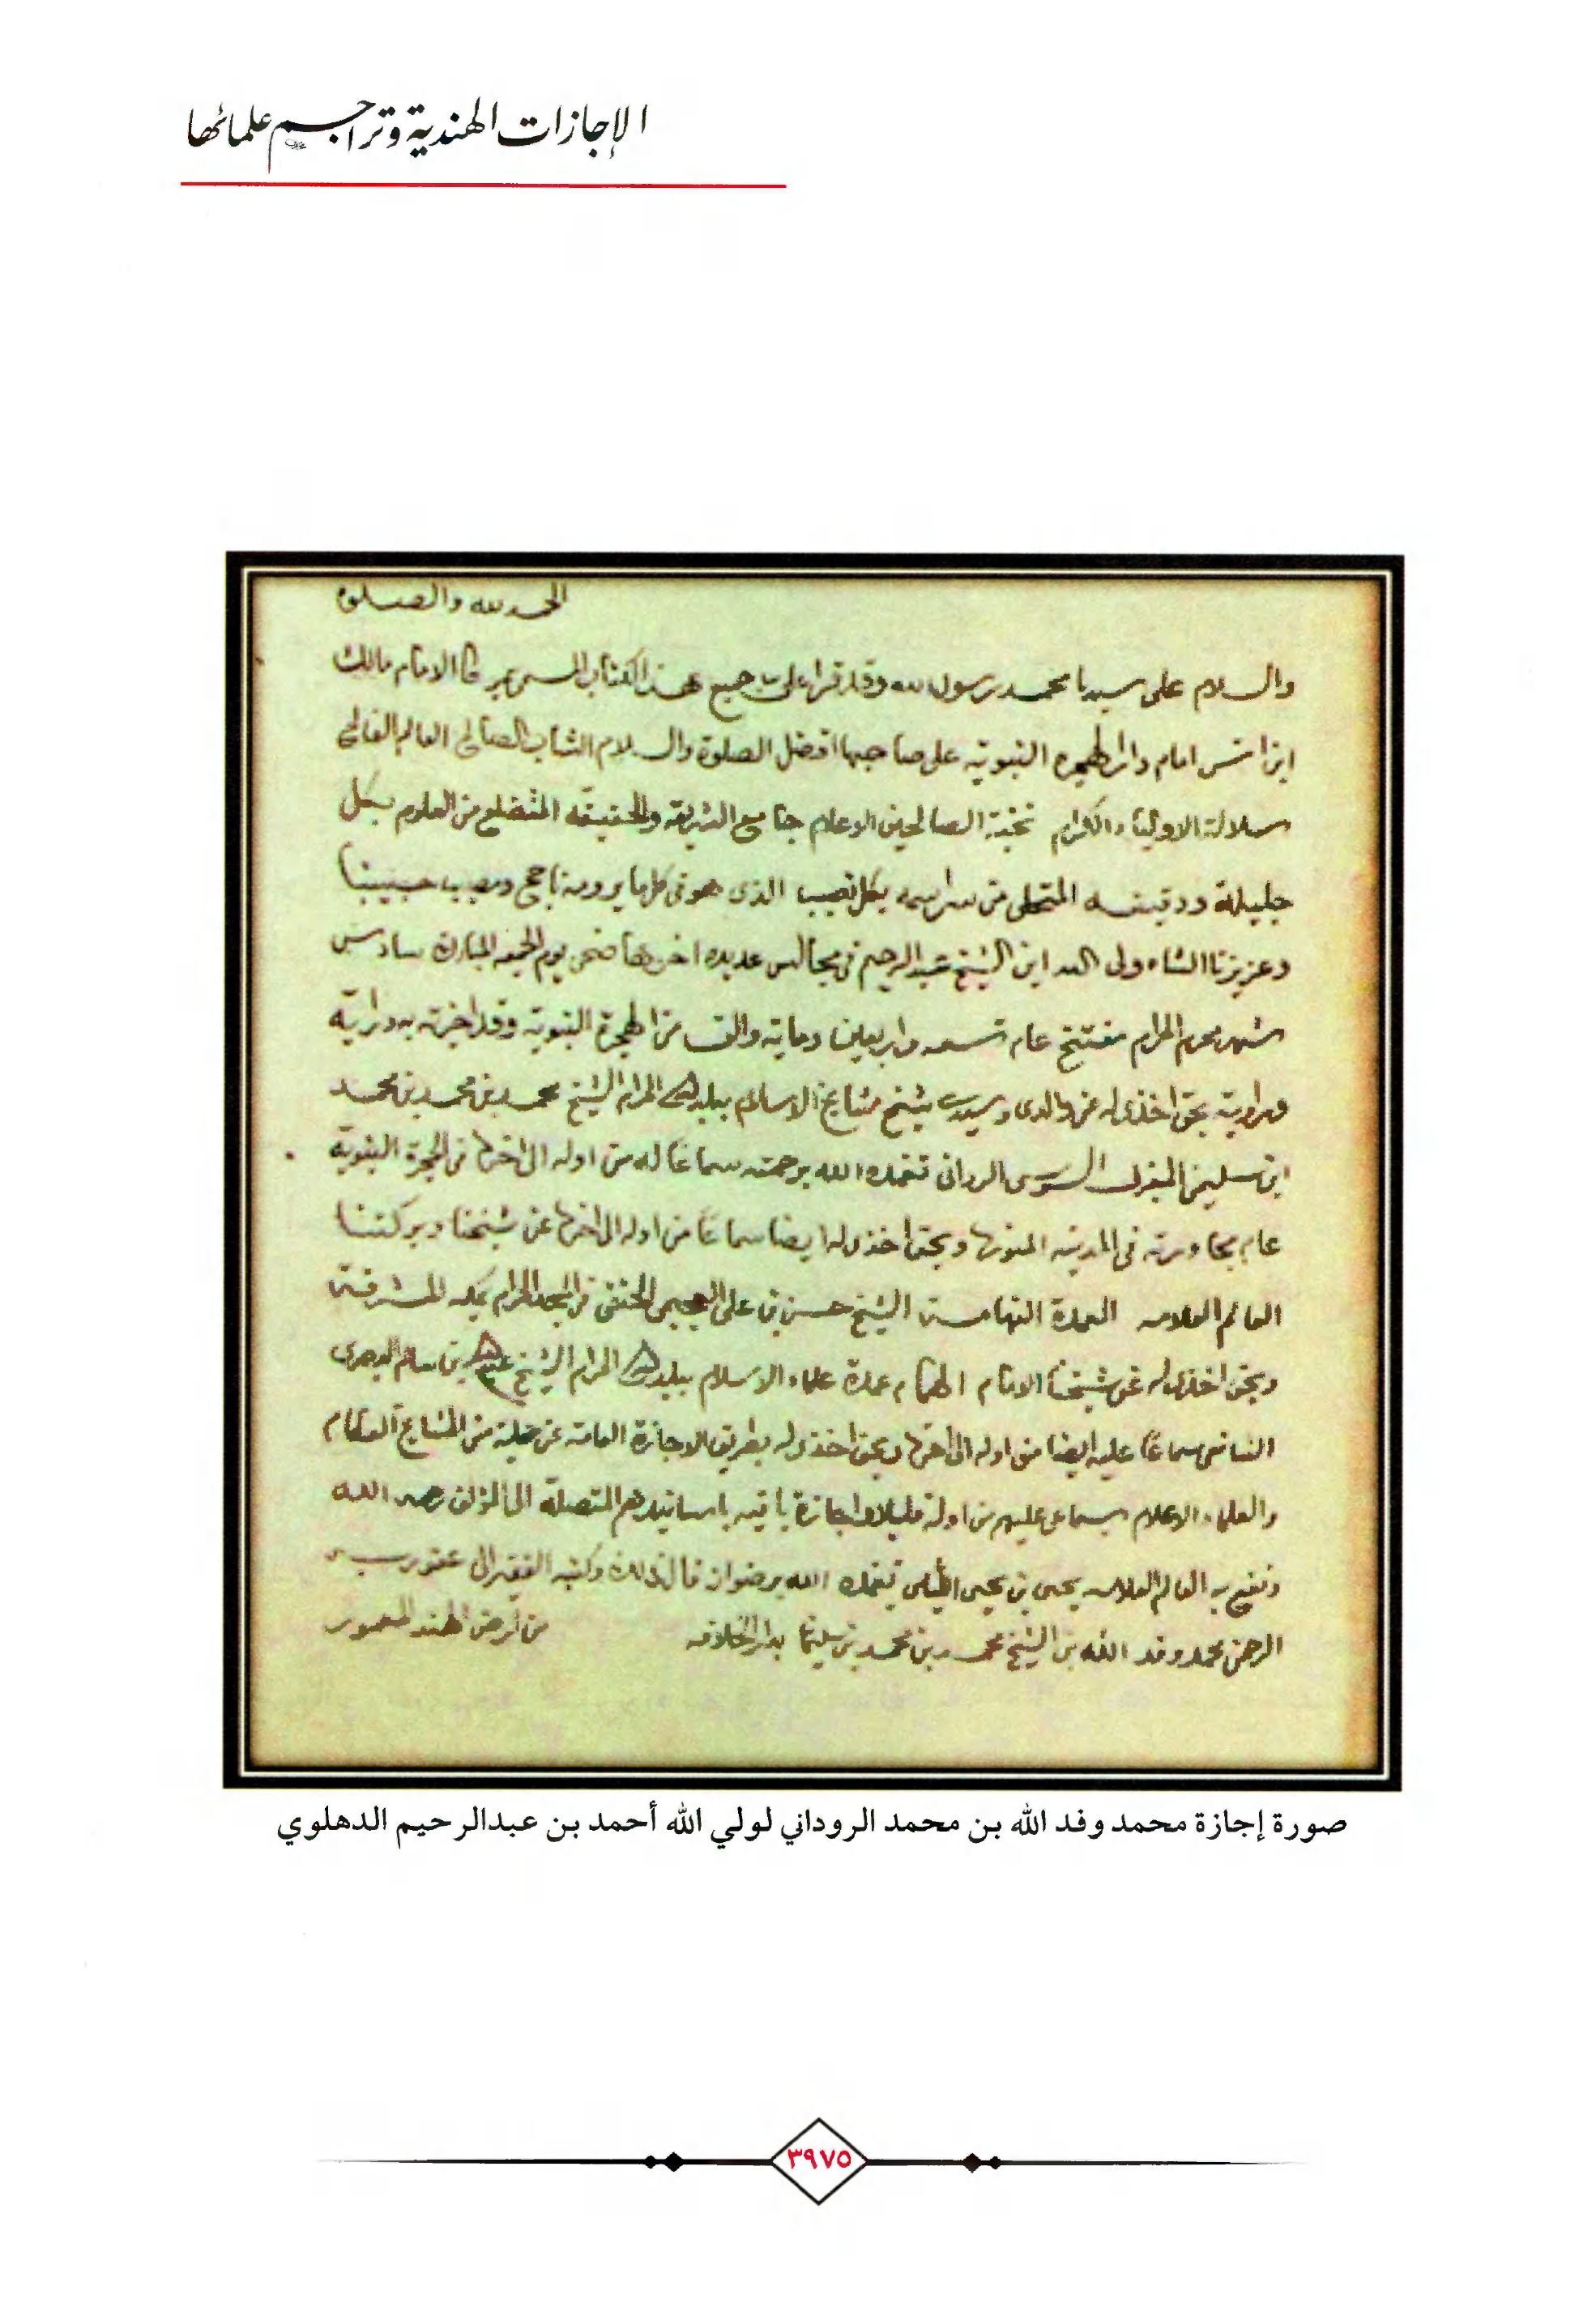 الإجازات الهندية وتراجم علمائها
الحمد لله والصلوة
والسلام على سيدنا محمد رسول الله وقد قرا على جميع هذا الكتاب المسمى بموطا الامام مالك
ابن انس امام دار الهجرة النبوية على صاحبها افضل الصلوة والسلام الشاب الصالح العالم الفالح
سلالة الاولياء الكرام نخبة الصالحين الاعلام جامع الشريعة والحقيقة المتضلع من العلوم بكل
جليلة ودقيقه المتحلى من بكل نصيب الذى هو فى كل ما يرومه ناجح ومصيب حبيبنا
وعزيزنا الشاه ولى الله ابن الشيخ عبد الرحيم فى مجالس عديده اخرها ضحى يوم الجمعه المبارك سادس
شهر محرم الحرام مفتتح عام واربعين ومايه والف من الهجرة النبوية وقد اجزته به دراية
ورواية بحق اخذى له عن والدى وسيدى شيخ مشايخ الاسلام ببلد الله الحرام الشيخ محمد بن محمد بن محمد
ابن سليمن المغربى السوسى الردانى تغمده الله برحمته سماعا له من اوله الى اخره فى الحجرة النبوية
عام مجاورته فى المدينه المنوره وبحق اخذى له ايضا سماعا من اوله الى اخره عن شيخنا وبركتنا
العالم العلامه العمدة الفهامه الشيخ حسن بن على العجيمى الحنفى فى المسجد الحرام بمكه المشرفه
وبحق اخذى له عن شيخنا الامام الهمام عمدة علماء الاسلام ببلد الله الحرام الشيخ عبد الله بن سالم البصرى
الشافعى سماعا عليه ايضا من اوله الى اخره وبحق اخذى له بطريق الاجازة العامه عن جملة من المشايخ العظام
والعلماء الاعلام بسماعى عليهم من اوله قليلا واجازة باقيه باسانيدهم المتصلة الى المؤلف رحمه الله
ونفع به العالم العلامه يحيى بن يحيى الليثى تغمده الله برضوانه قال ذلك وكتبه الفقير الى عفو ربه
الرحمن محمد وفد الله بن الشيخ محمد بن محمد بن سليمان بدار الخلافه من ارض الهند المعمور
صورة إجازة محمد وفد الله بن محمد الروداني لولي الله أحمد بن عبدالرحيم الدهلوي
٣٩٧٥